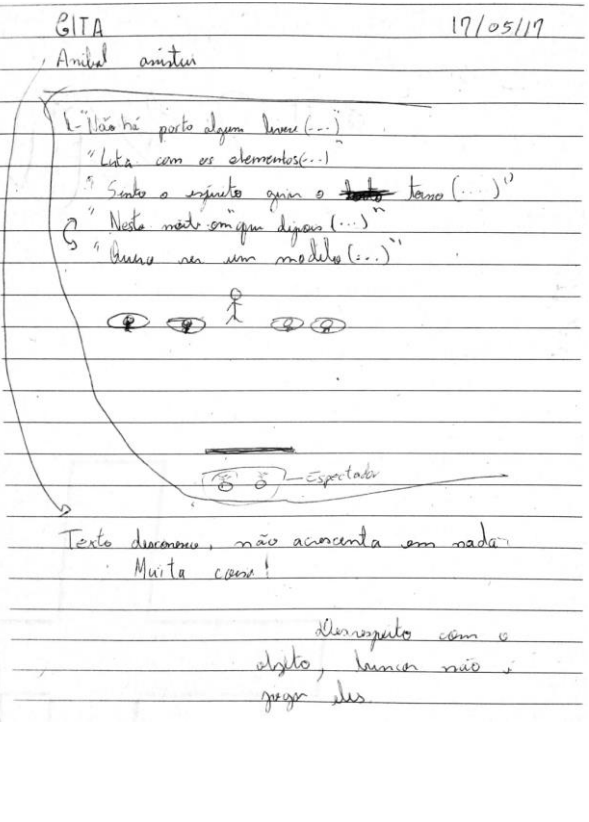 GITA 17/05/17
Anibal assistiu
1-"Não há porto algum (...)"
"Luta com os elementos(...)"
"Sinto o espírito guiar o (...)"
"Nesta noite em que depois (...)"
"Quero ser um modelo (...)"
Espectador
Texto desconexo, não acrescenta em nada.
Muita coisa!
Desrespeito com o
objeto, não é
jogar eles.